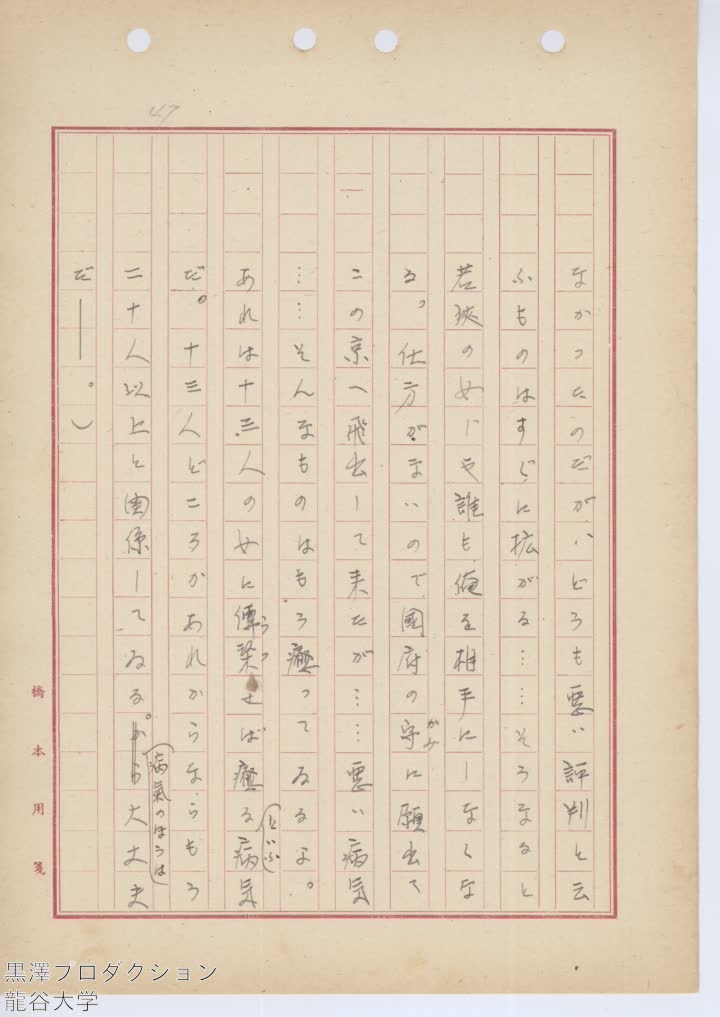 47
なかつたのだが、どうも悪い評判と云
ふものはすぐに拡がる……そうなると
若狭の女じや誰も俺を相手にしなくな
る。仕方がないので國府の守に願出て
かみ
この京へ飛出して来たが……悪い病気
……そんなものはもう癒つてゐるよ。
あれは十三人の女に傳染せば癒る病気
うつ
(といふ)
だ。十三人どころかあれからならもう
二十人以上と関係してゐる。から大丈夫
(病氣のはうは)
だ――。)
橋本用箋
黒澤プロダクション
龍谷大学